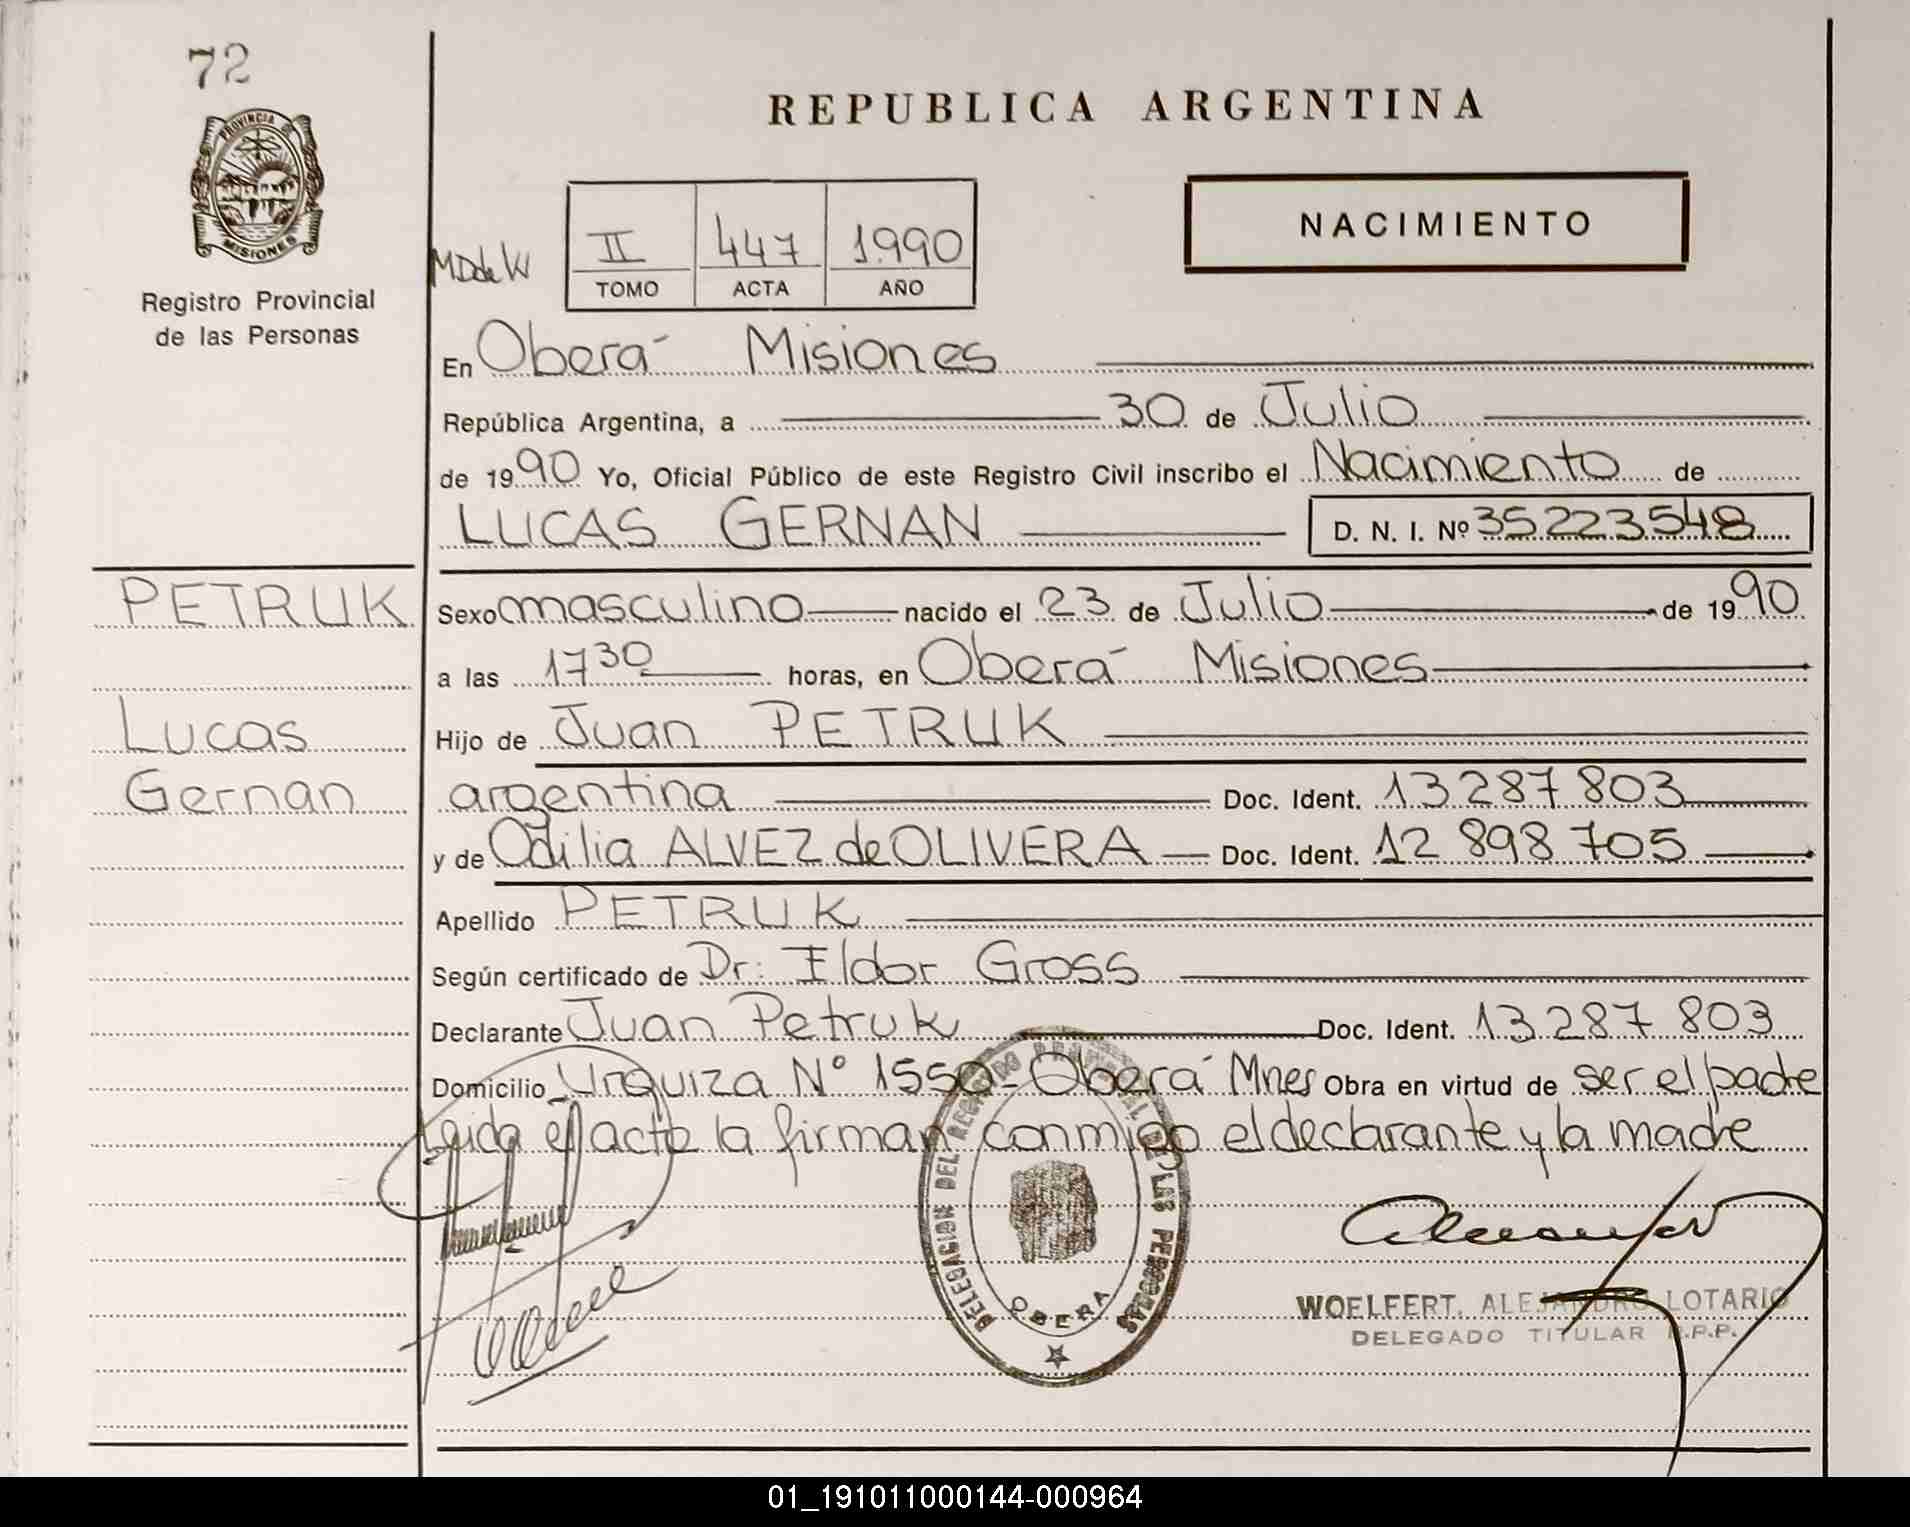 72
PROVINCIA DE
MISIONES
Registro Provincial
de las Personas
REPUBLICA ARGENTINA
NACIMIENTO
MDdeW
II 447 1990
TOMO ACTA AÑO
En Oberá Misiones
República Argentina, a 30 de Julio
de 1990 Yo, Oficial Público de este Registro Civil inscribo el Nacimiento de
LUCAS GERNAN D. N. I. Nº 35223548
PETRUK
Lucas
Gernan
Sexo masculino nacido el 23 de Julio de 1990
a las 17 30 horas, en Oberá Misiones
Hijo de Juan PETRUK
argentina Doc. Ident. 13 287 803
y de Odilia ALVEZ de OLIVERA Doc. Ident. 12 898 705
Apellido PETRUK
Según certificado de Dr: Eldor Gross
Declarante Juan Petruk Doc. Ident. 13 287 803
Domicilio Urquiza Nº 1550 - Oberá Mnes Obra en virtud de ser el padre
Leida el acta la firman conmigo el declarante y la madre
DELEGACION DEL REGISTRO PROVINCIAL DE LAS PERSONAS
OBERA
WOELFERT, ALEJANDRO LOTARIO
DELEGADO TITULAR R.P.P.
01_191011000144-000964